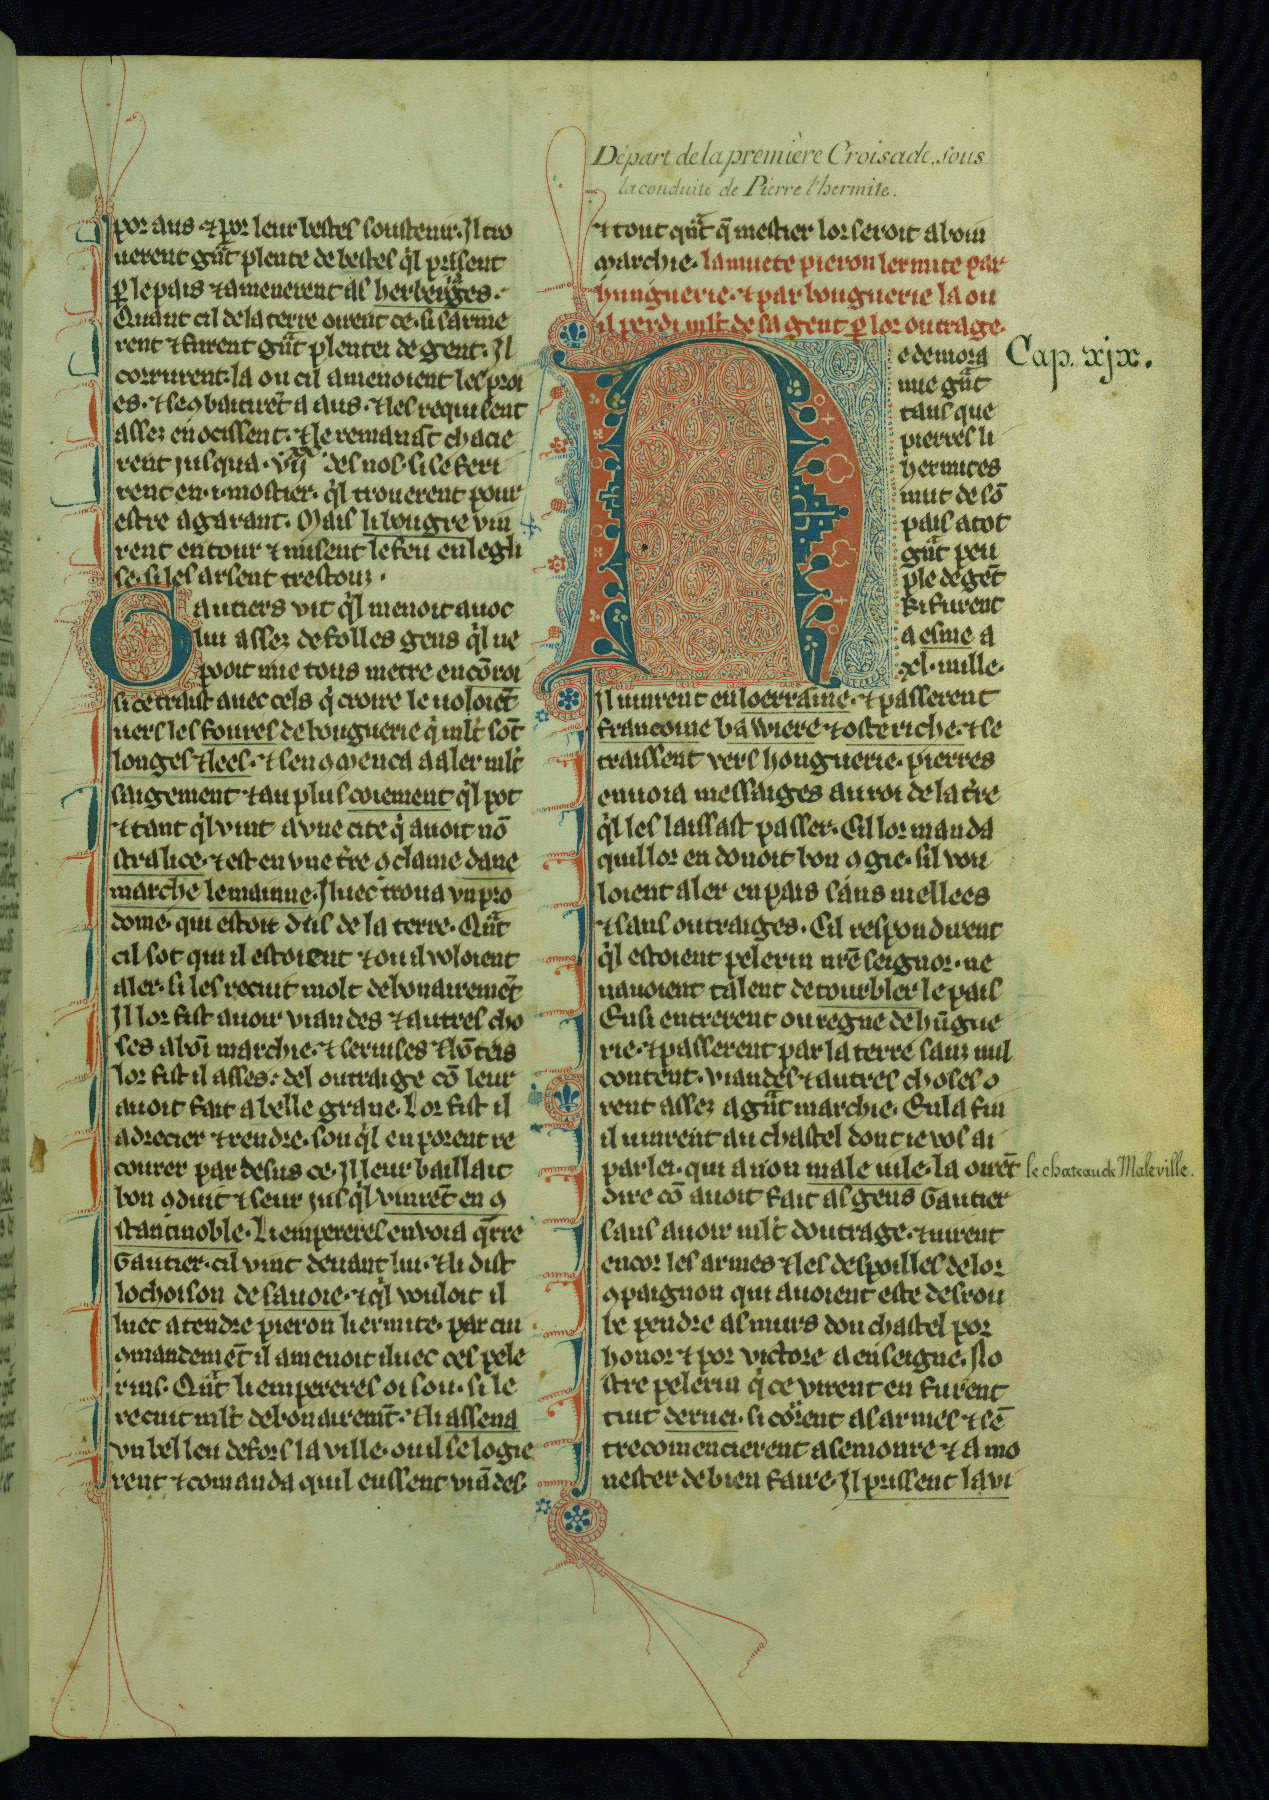 10
Départ de la première Croisade, sous
la conduite de Pierre l'hermite.
por aus ⁊ por leur bestes soustenir. Il tro
uerent gn̄t plente de bestes q̓l prisent
ꝑ le pais ⁊ amenerent as herberges.
Quant cil de la terre oirent ce. si sarme
rent ⁊ furent gn̄t plentei de gent. Il
corrurent la ou cil amenoient les proi
es. ⁊ se ꝯbatirēt a aus. ⁊ les requisent
assez en ocissent. ⁊ le remanāt chacie
rent jusqua . vij. des nos. si se feri
rent en .i. mostier. q̓l trouerent pour
estre a garant. Mais li bougre vin
rent entour ⁊ misent le feu en legli
se. si les arsent trestouz.
Gautiers vit q̓l menoit auoc
lui assez de folles gens q̓l ne
pooit mie tous metre en cōroi
si ce traist auec cels q̓ croire le uoloiēt
uers les foures de bouguerie q̓ mlt̓ sōt
longes ⁊ lees. ⁊ sen ꝯmenca a aler mlt̓
saigement ⁊ au plus coiement q̓l pot
⁊ tant q̓l vint a vne cite q̓ auoit nō
stralice. ⁊ est en vne t̓re ꝯ claime dane
marche le mainne. Illuec troua vn pro
dome. qui estoit dus de la terre. Qn̄t
cil sot qui il estoient ⁊ ou il voloient
aler. si les recuit molt debonairemēt
Il lor fist auoir viandes ⁊ autres cho
ses a boī marchie. ⁊ seruises ⁊ bōteis
lor fist il asses. del outraige cō leur
auoit fait a belle graue. Lor fist il
adrecier ⁊ rendre. sou q̓l en porent re
courer par desus ce. Il leur baillait
bon ꝯduit ⁊ seur jusq̓l vinrēt en ꝯ
stantinoble. Li empereres envoia q̄rre
Gautier. cil vint deuant lui. ⁊ li dist
lochoison de sa uoie. ⁊ q̓l vouloit il
luec atendre pieron liermite. par cui
ꝯmandemēt il amenoit iluec ces pele
rins. Qn̄t li empereres oi sou. si le
recuit mlt̓ debonairemt̄. ⁊ li assena
vn bel leu defors la ville. ou il se logie
rent ⁊ comanda quil eussent viādes
⁊ tout qn̄t q̄ mestier lor seroit a boin
marchie. la muete pieron lermite par
hunguerie. ⁊ par bouguerie la ou
il perdi mlt̓ de sa gent ꝑ lor outrage.
Cap. xjx.
Ne demora
mie gn̄t
tans que
pierres li
hermites
mut de sō
pais a tot
gn̄t peu
ple de gēt
ki furent
a esme a
.xl. mille.
Il vinrent en loerraine. ⁊ passerent
franconie bawiere ⁊ osteriche. ⁊ se
traissent vers honguerie. pierres
enuoia messaiges au roi de la t̓re
q̓l les laissast passer. Cil lor manda
quil lor en donoit bon ꝯgie. sil vou
loient aler en pais sans mellees
⁊ sans outraiges. Cil respondirent
q̓l estoient pelerin nr̄e seignor. ne
nauoient talent de tourbler le pais
Ensi entrerent ou regne de hūgue
rie. ⁊ passerent par la terre sanz nul
content. viandes ⁊ autres choses o
rent assez a gn̄t marchie. En la fin
il vinrent au chastel dont ie vos ai
parlei. qui a nō male uile. la oirēt
le chateau de Maleville.
dire cō auoit fait as gens Gautier
sans auoir mlt̓ doutrage. ⁊ uirent
encor les armes ⁊ les despoilles de lor
ꝯpaignon qui auoient este desrou
be pendre as murs dou chastel por
honor ⁊ por victore a enseigne. No
stre pelerin q̓ ce virent en furent
tuit deruei. si corēnt as armes ⁊ sē
trecomencierent a semonre ⁊ a mo
nester de bien faire. Il prissent la vi